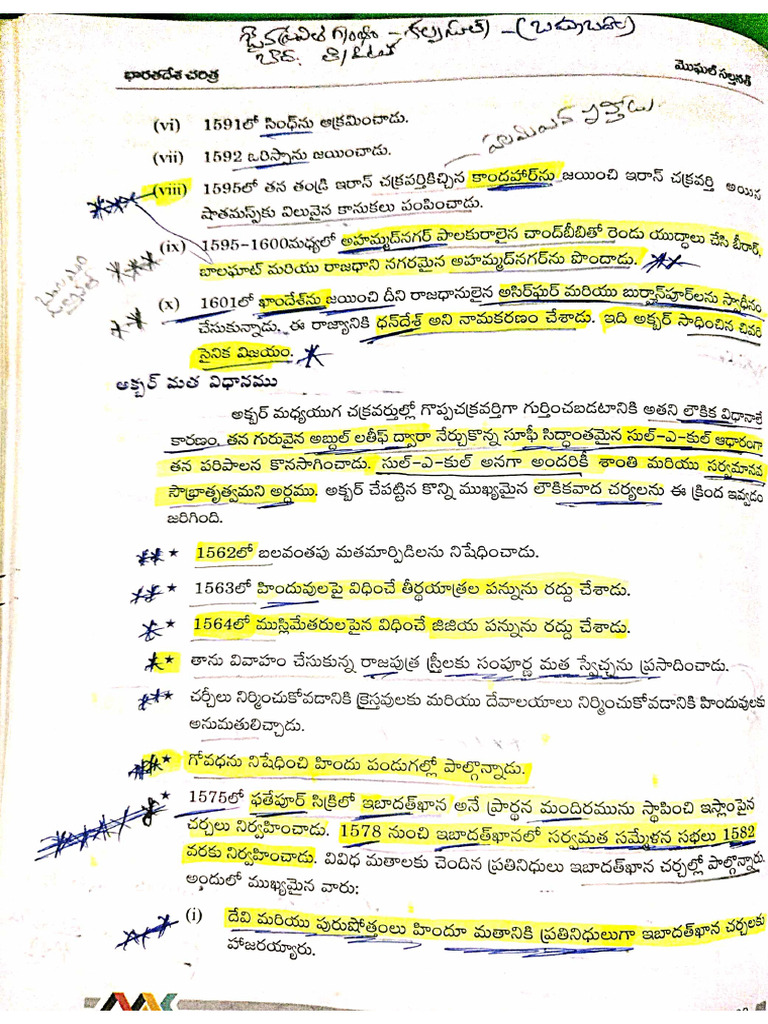 జైన పవిత్ర గ్రంథం - కల్పసూత్ర - (భద్రబాహు)
భారతదేశ చరిత్ర
మొఘల్ సల్తనత్
(vi) 1591లో సింధ్‌ను ఆక్రమించాడు.
(vii) 1592 ఒరిస్సాను జయించాడు.
(viii) 1595లో తన తండ్రి ఇరాన్ చక్రవర్తికిచ్చిన కాందహార్‌ను జయించి ఇరాన్ చక్రవర్తి అయిన
షాతమస్ప్‌కు విలువైన కాసుకలు పంపించాడు.
(ix) 1595-1600మధ్యలో అహమ్మద్‌నగర్ పాలకురాలైన చాంద్‌బీబితో రెండు యుద్ధాలు చేసి బీరార్,
బాలఘాట్ మరియు రాజధాని నగరమైన అహమ్మద్‌నగర్‌ను పొందాడు.
(x) 1601లో ఖాందేశ్‌ను జయించి దీని రాజధానులైన అసిర్‌ఘర్ మరియు బుర్హాన్‌పూర్‌లను స్వాధీనం
చేసుకున్నాడు. ఈ రాజ్యానికి ధన్‌దేశ్ అని నామకరణం చేశాడు. ఇది అక్బర్ సాధించిన చివరి
సైనిక విజయం.
అక్బర్ మత విధానము
అక్బర్ మధ్యయుగ చక్రవర్తుల్లో గొప్పచక్రవర్తిగా గుర్తించబడటానికి అతని లౌకిక విధానాలే
కారణం. తన గురువైన అబ్దుల్ లతీఫ్ ద్వారా నేర్చుకొన్న సూఫీ సిద్ధాంతమైన సుల్-ఎ-కుల్ ఆధారంగా
తన పరిపాలన కొనసాగించాడు. సుల్-ఎ-కుల్ అనగా అందరికీ శాంతి మరియు సర్వమానవ
సౌభ్రాతృత్వమని అర్థము. అక్బర్ చేపట్టిన కొన్ని ముఖ్యమైన లౌకికవాద చర్యలను ఈ క్రింద ఇవ్వడం
జరిగింది.
★ 1562లో బలవంతపు మతమార్పిడిలను నిషేధించాడు.
★ 1563లో హిందువులపై విధించే తీర్థయాత్రల పన్నును రద్దు చేశాడు.
★ 1564లో ముస్లిమేతరులపైన విధించే జిజియ పన్నును రద్దు చేశాడు.
★ తాను వివాహం చేసుకున్న రాజపుత్ర స్త్రీలకు సంపూర్ణ మత స్వేచ్ఛను ప్రసాదించాడు.
★ చర్చీలు నిర్మించుకోవడానికి క్రైస్తవులకు మరియు దేవాలయాలు నిర్మించుకోవడానికి హిందువులకు
అనుమతులిచ్చాడు.
★ గోవధను నిషేధించి హిందు పండుగల్లో పాల్గొన్నాడు.
★ 1575లో ఫతేపూర్ సిక్రిలో ఇబాదత్‌ఖాన అనే ప్రార్థన మందిరమును స్థాపించి ఇస్లాంపైన
చర్చలు నిర్వహించాడు. 1578 నుంచి ఇబాదత్‌ఖానలో సర్వమత సమ్మేళన సభలు 1582
వరకు నిర్వహించాడు. వివిధ మతాలకు చెందిన ప్రతినిధులు ఇబాదత్‌ఖాన చర్చల్లో పాల్గొన్నారు.
అందులో ముఖ్యమైన వారు:
(i) దేవి మరియు పురుషోత్తంలు హిందూ మతానికి ప్రతినిధులుగా ఇబాదత్‌ఖాన చర్చలకు
హాజరయ్యారు.